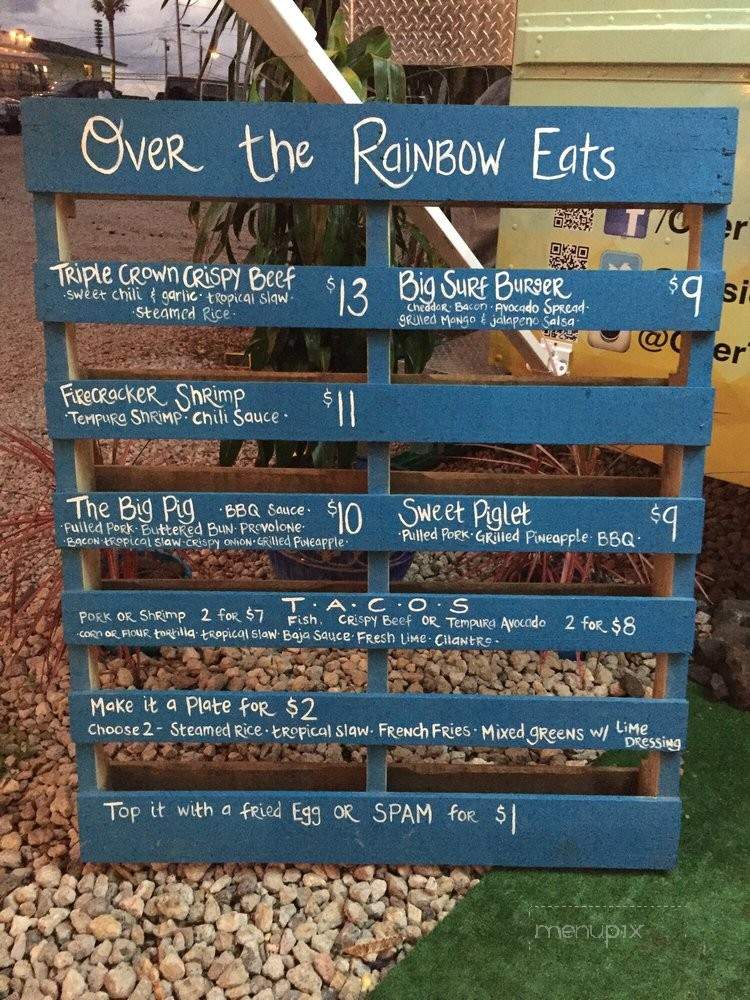 Over the Rainbow Eats
Triple Crown Crispy Beef $13
·Sweet chili & garlic· tropical slaw·
·Steamed Rice·
Big Surf Burger $9
cheddar· Bacon· Avocado Spread·
grilled Mango & jalapeno Salsa·
Firecracker Shrimp $11
·Tempura Shrimp· Chili Sauce·
The Big Pig ·BBQ Sauce· $10
·Pulled Pork· Buttered Bun· Provolone·
·Bacon·tropical slaw·crispy onion·Grilled Pineapple·
Sweet Piglet $9
·Pulled Pork·Grilled Pineapple· BBQ·
T·A·C·O·S
Pork or Shrimp 2 for $7 Fish, Crispy Beef or Tempura Avocado 2 for $8
·corn or flour tortilla· tropical slaw· Baja Sauce· Fresh Lime· Cilantro·
Make it a Plate for $2
Choose 2- Steamed Rice· tropical slaw· French Fries· Mixed greens w/ Lime Dressing
Top it with a fried Egg or SPAM for $1
menupix